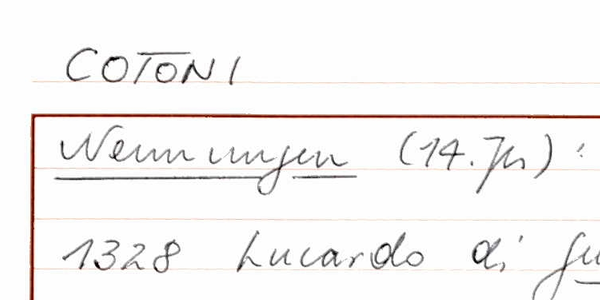 COTONI
Nennungen (14. Jh):
1328 Lucardo di